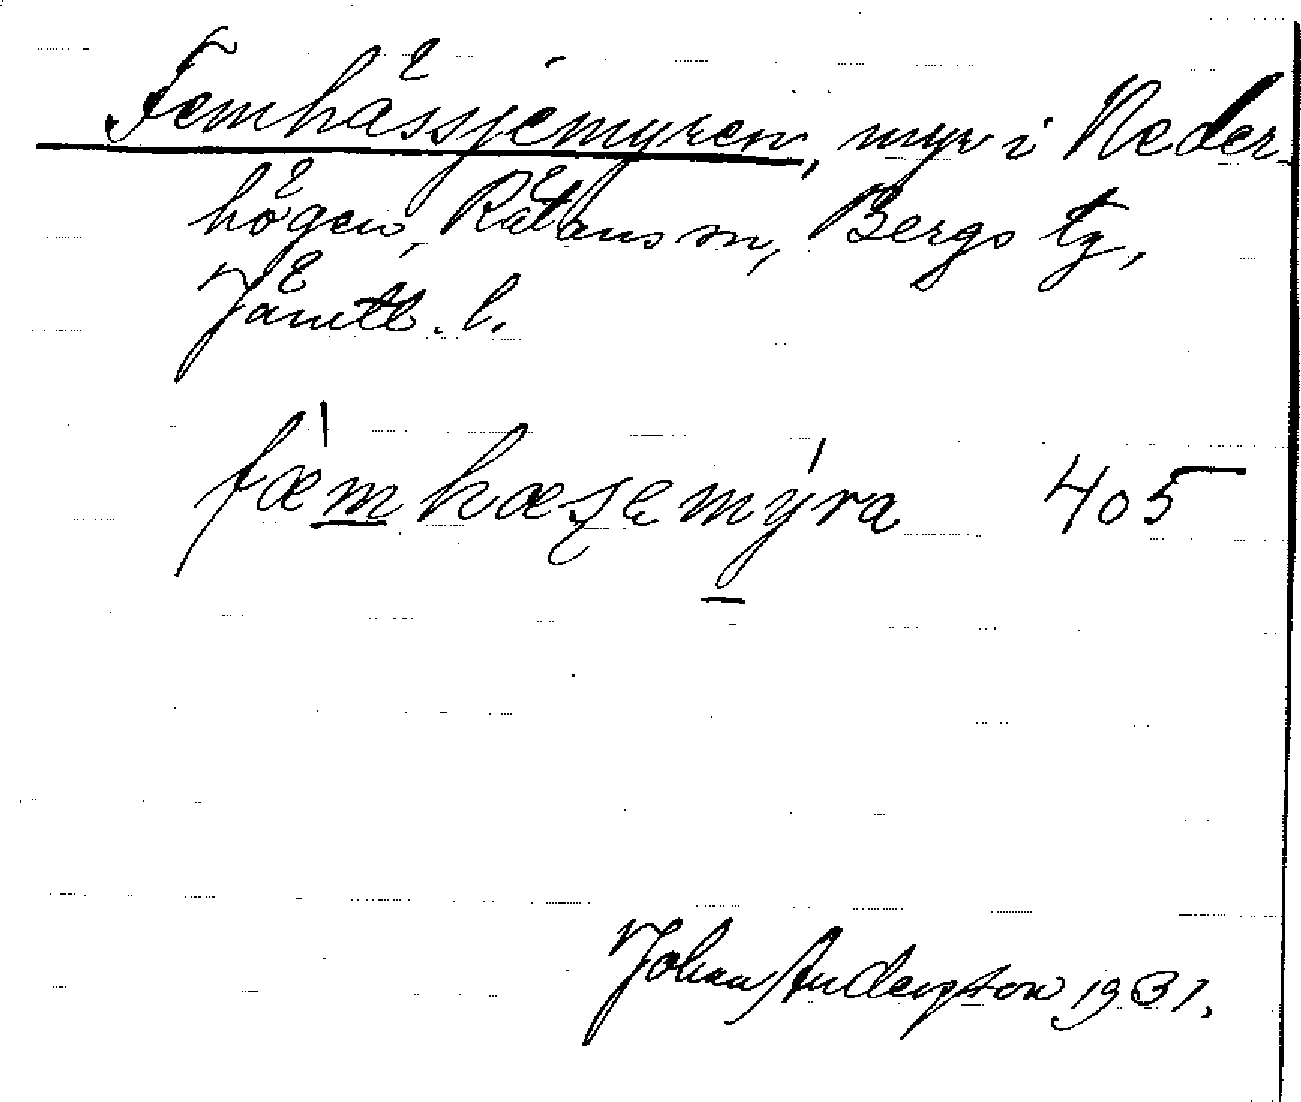 Femhässjemyren, myr i Neder-
högen, Rätans sn, Bergs tg,
Jämtl. l.
fæmhæsʃemýra 405
Johan Anderson 1931.